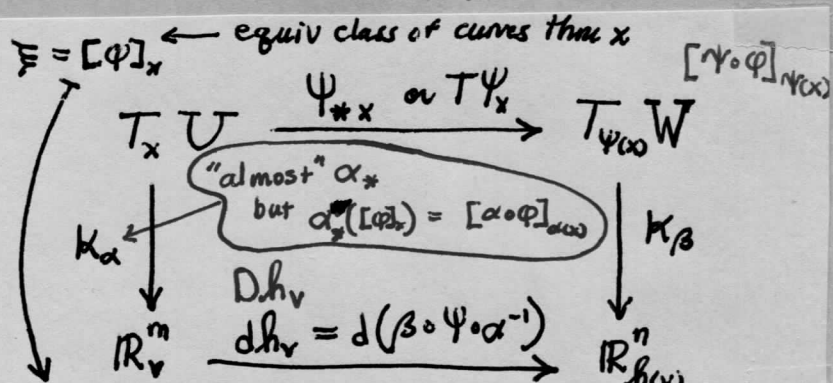 ξ = [φ]ₓ ← equiv class of curves thru x
[ψ∘φ]_ψ(x)
Ψ_*x or TΨₓ
TₓU → T_Ψ(x)W
"almost" α_*
but α_*([φ]ₓ) = [α∘φ]_α(x)
K_α
K_β
Dh_v
dh_v = d(β∘Ψ∘α⁻¹)
ℝ_v^m → ℝ^n_h(v)